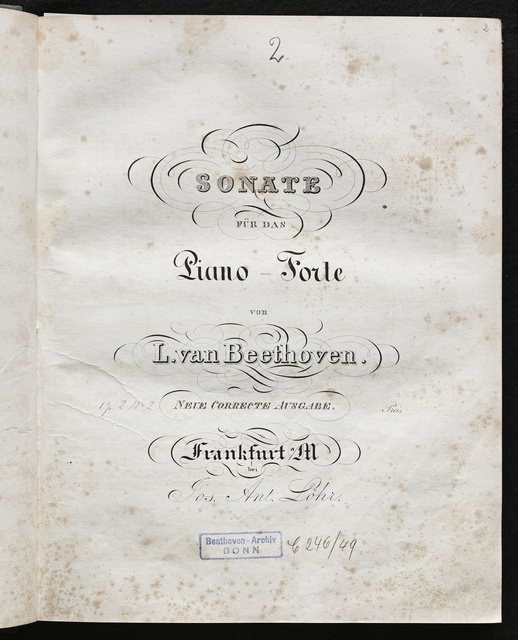 2
2
SONATE
FÜR DAS
Piano-Forte
von
L. van Beethoven.
Op. 2 No 2
NEUE CORRECTE AUSGABE.
Preis
Frankfurt a/M
bei
Jos. Ant. Löhr.
Beethoven-Archiv
BONN
C 246/49